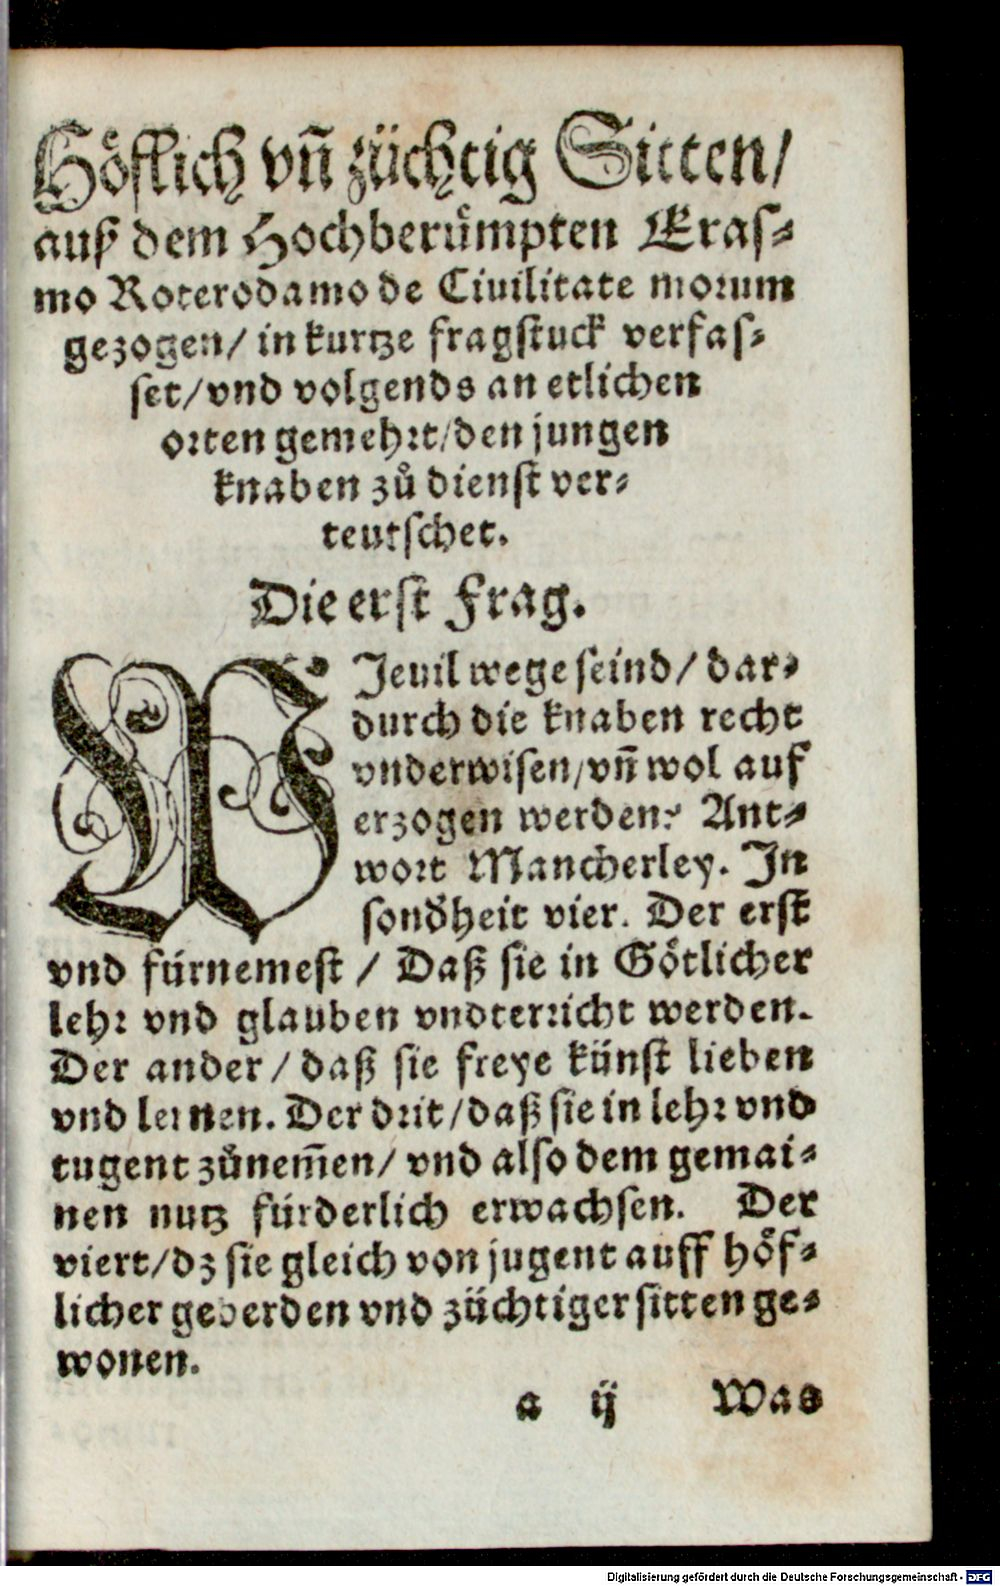 Hoͤflich vnd̃ zuͤchtig Sitten/
auß dem Hochberuͤmpten Eras⸗
mo Roterodamo de Ciuilitate morum
gezogen/ in kurtze fragstuck verfas⸗
set/ vnd volgends an etlichen
orten gemehrt/ den jungen
knaben zů dienst ver⸗
teutschet.
Die erst Frag.
WJeuil wege seind/ dar⸗
durch die knaben recht
vnderwisen/ vñ wol auf
erzogen werden? Ant⸗
wort Mancherley. In
sonďheit vier. Der erst
vnd fürnemest / Daß sie in Goͤtlicher
lehr vnd glauben vndterricht werden.
Der ander / daß sie freye künst lieben
vnd lernen. Der drit/ daß sie in lehr vnd
tugent zůnem̃en/ vnd also dem gemai⸗
nen nutz fürderlich erwachsen. Der
viert/ dz sie gleich von jugent auff hoͤf⸗
licher geberden vnd züchtiger sitten ge⸗
wonen.
a ij Was
Digitalisierung gefördert durch die Deutsche Forschungsgemeinschaft - DFG